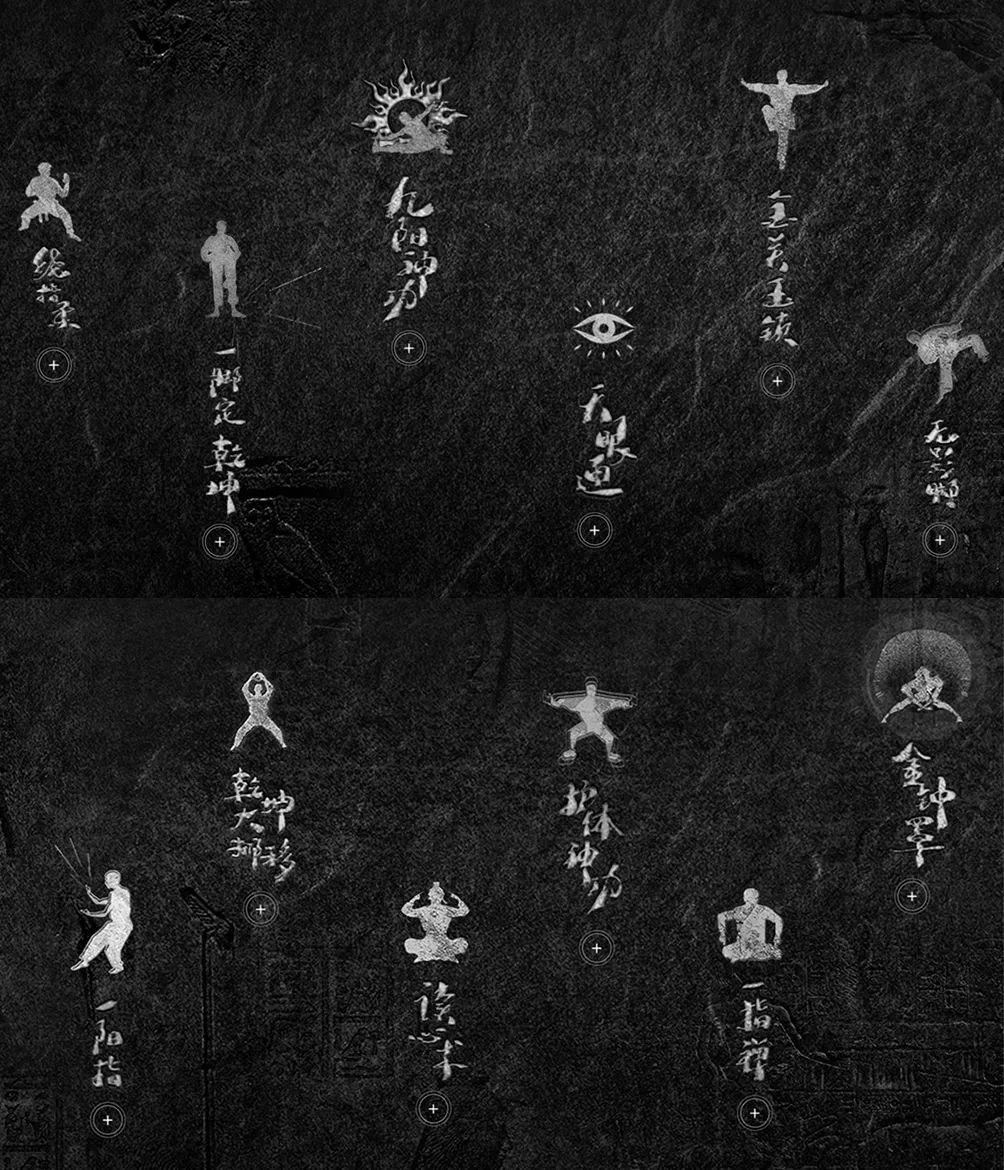 绕指柔
一脚定乾坤
九阳神功
天眼通
金关玉锁
无影脚
一阳指
乾坤大挪移
读心术
护体神功
一指禅
金钟罩